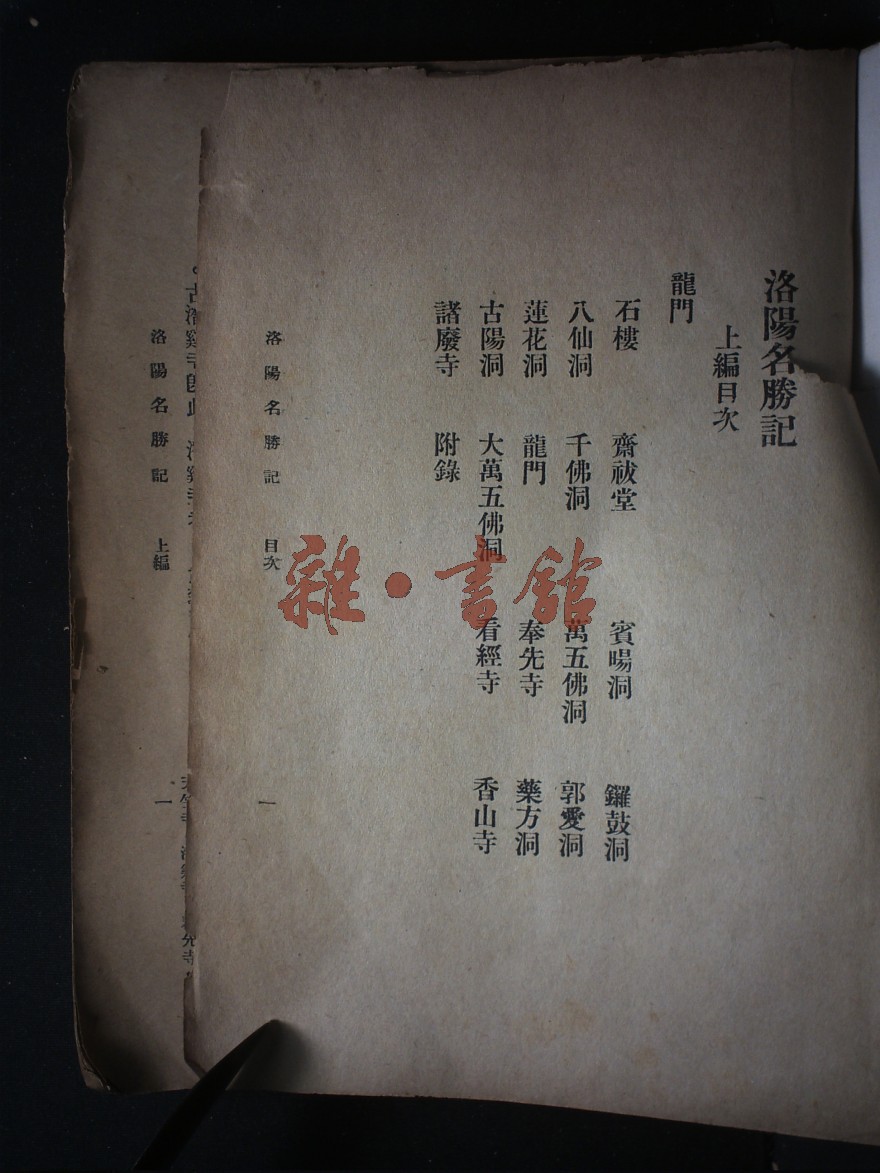 洛陽名勝記
上編目次
龍門
石樓　齋祓堂　賓暘洞　鑼鼓洞
八仙洞　千佛洞　萬五佛洞　郭愛洞
蓮花洞　龍門　奉先寺　藥方洞
古陽洞　大萬五佛洞　看經寺　香山寺
諸廢寺　附錄
洛陽名勝記　目次　一
洛陽名勝記　上編　一
雜·書館